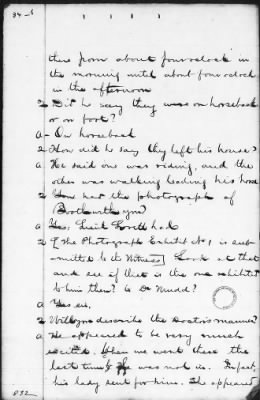 there from about four o'clock in
the morning until about four o'clock
in the afternoon
Q Did he say they were on horseback
or on foot?
A On horseback
Q How did he say they left his house?
A He said one was riding, and the
other was walking leading his horse
Q You had the photograph of
Booth with you?
A Yes: Lieut Lovett had
Q [The Photograph Exhibit No 1 is sub-
mitted to the Witness] Look at that
and see if that is the one exhibited
to him then? to Dr Mudd?
A Yes sir.
Q Will you describe the Doctor's manner?
A He appeared to be very much
excited. When we went there the
last time he was not in. In fact,
his lady sent for him. She appeared